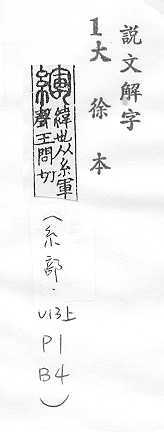 說文解字
1大徐本
緷
緯也从糸軍
聲王問切
(糸部.V13上 P1 B4)